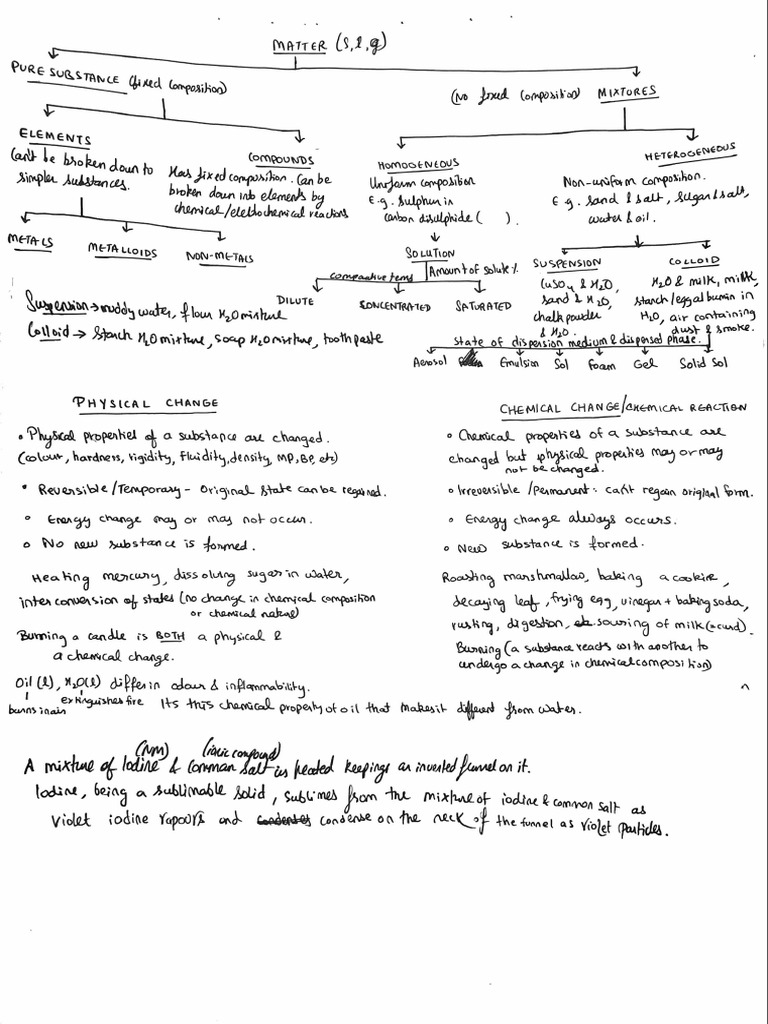 MATTER (s, l, g)
PURE SUBSTANCE (fixed composition)
(No fixed composition) MIXTURES
ELEMENTS
Can't be broken down to
simpler substances.
COMPOUNDS
Has fixed composition. Can be
broken down into elements by
chemical/elctrochemical reactions
HOMOGENEOUS
Uniform composition
E.g. Sulphur in
carbon disulphide ( ).
HETEROGENEOUS
Non-uniform composition.
E g. sand & salt, sugar & salt,
water & oil.
METALS
METALLOIDS
NON-METALS
SOLUTION
comparative terms
Amount of solute %
DILUTE
CONCENTRATED
SATURATED
SUSPENSION
CuSO4 & H2O,
sand & H2O,
chalk powder
& H2O.
COLLOID
H2O & milk, milk,
starch/egg albumin in
H2O, air containing
dust & smoke.
Suspension → muddy water, flour H2O mixture
Colloid → Starch H2O mixture, soap H2O mixture, tooth paste
State of dispersion medium & dispersed phase.
Aerosol Emulsion Sol Foam Gel Solid Sol
PHYSICAL CHANGE
• Physical properties of a substance are changed.
(colour, hardness, rigidity, fluidity, density, MP, BP, etc)
• Reversible/Temporary - Original state can be regained.
• Energy change may or may not occur.
• No new substance is formed.
Heating mercury, dissolving sugar in water,
interconversion of states (no change in chemical composition
or chemical nature)
Burning a candle is BOTH a physical &
a chemical change.
CHEMICAL CHANGE/CHEMICAL REACTION
• Chemical properties of a substance are
changed but physical properties may or may
not be changed.
• Irreversible/Permanent: can't regain original form.
• Energy change always occurs.
• New substance is formed.
Roasting marshmallow, baking a cookie,
decaying leaf, frying egg, vinegar + baking soda,
rusting, digestion, souring of milk (curd).
Burning (a substance reacts with another to
undergo a change in chemical composition)
Oil(l), H2O(l) differ in odour & inflammability.
burns in air
extinguishes fire Its this chemical property of oil that makes it different from water.
(NM) (ionic compound)
A mixture of Iodine & common salt is heated keepings an inverted funnel on it.
Iodine, being a sublimable solid, sublimes from the mixture of iodine & common salt as
violet iodine vapours and condense on the neck of the funnel as violet particles.